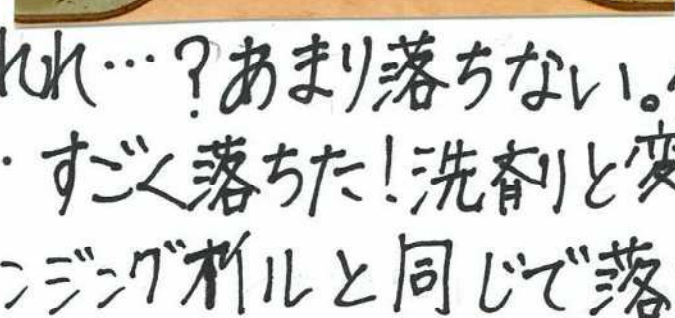 れれ…？あまり落ちない。
・すごく落ちた！洗剤と変
ンジングオイルと同じで落